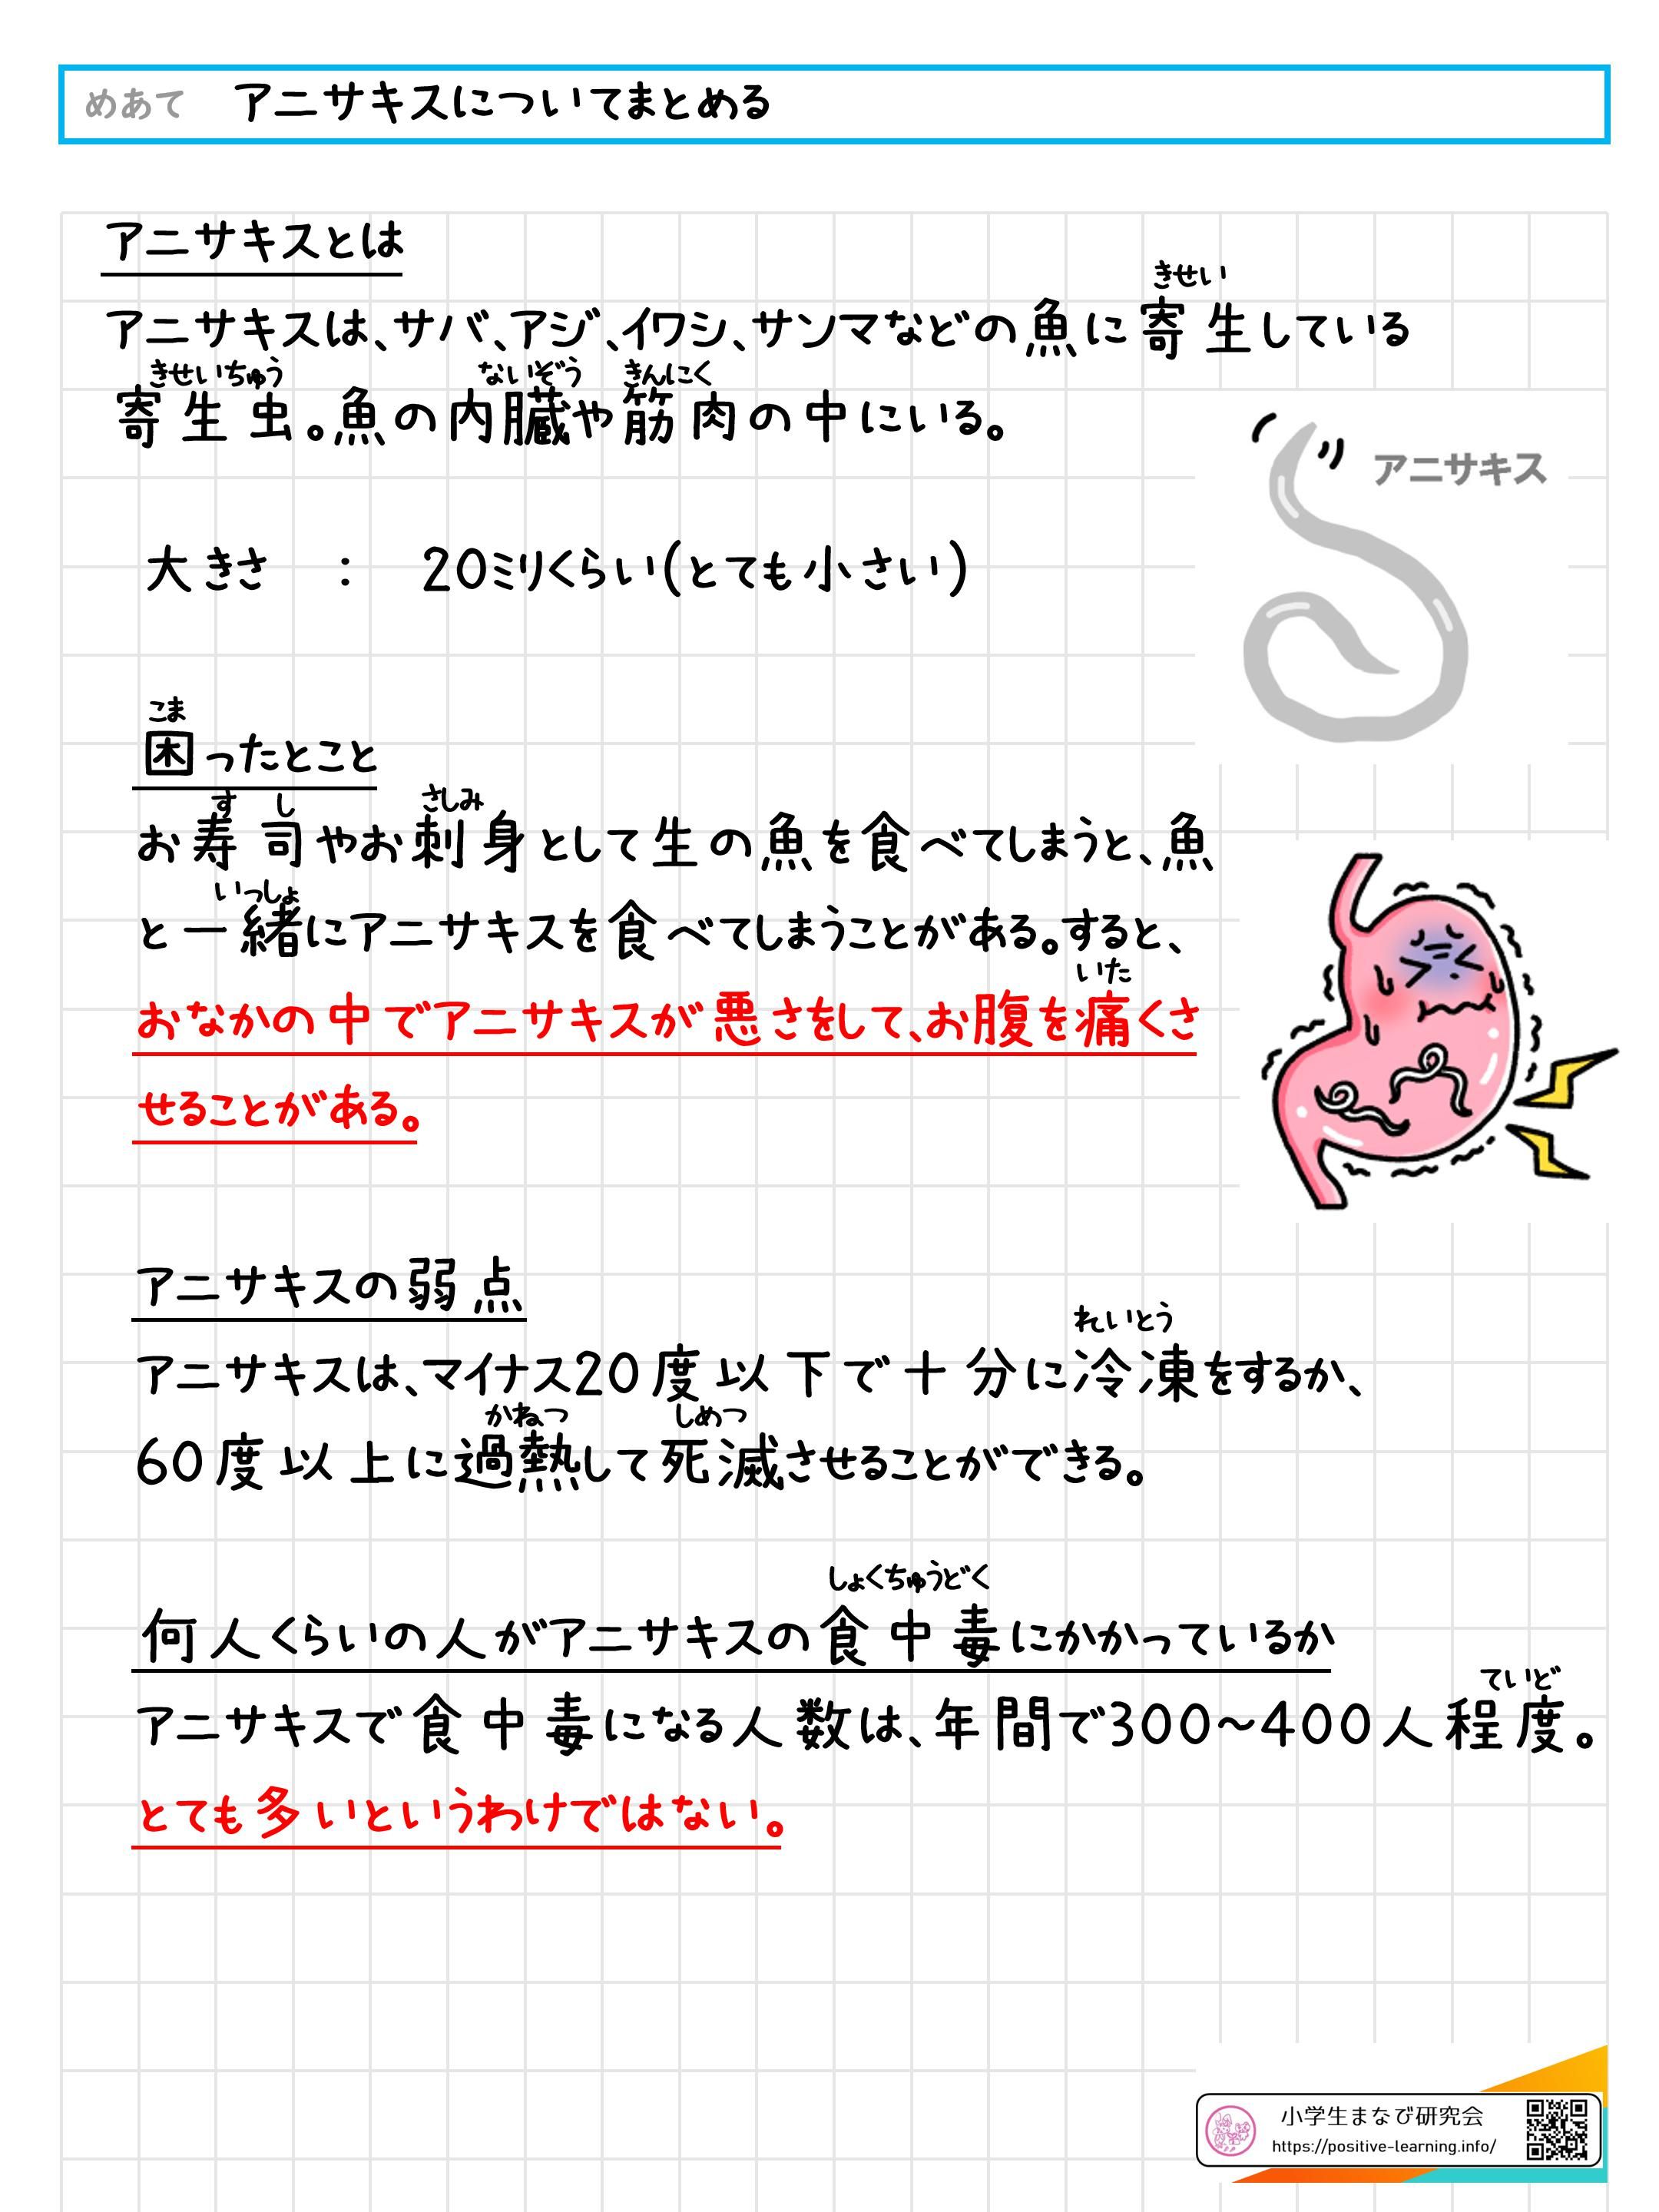 めあて　アニサキスについてまとめる
アニサキスとは
きせい
アニサキスは、サバ、アジ、イワシ、サンマなどの魚に寄生している
きせいちゅう　ないぞう　きんにく
寄生虫。魚の内臓や筋肉の中にいる。
アニサキス
大きさ　：　20ミリくらい(とても小さい)
こま
困ったとこと
す　し　さしみ
お寿司やお刺身として生の魚を食べてしまうと、魚
いっしょ
と一緒にアニサキスを食べてしまうことがある。すると、
いた
おなかの中でアニサキスが悪さをして、お腹を痛くさ
せることがある。
アニサキスの弱点
れいとう
アニサキスは、マイナス20度以下で十分に冷凍をするか、
かねつ　しめつ
60度以上に過熱して死滅させることができる。
しょくちゅうどく
何人くらいの人がアニサキスの食中毒にかかっているか
ていど
アニサキスで食中毒になる人数は、年間で300～400人程度。
とても多いというわけではない。
小学生まなび研究会
https://positive-learning.info/